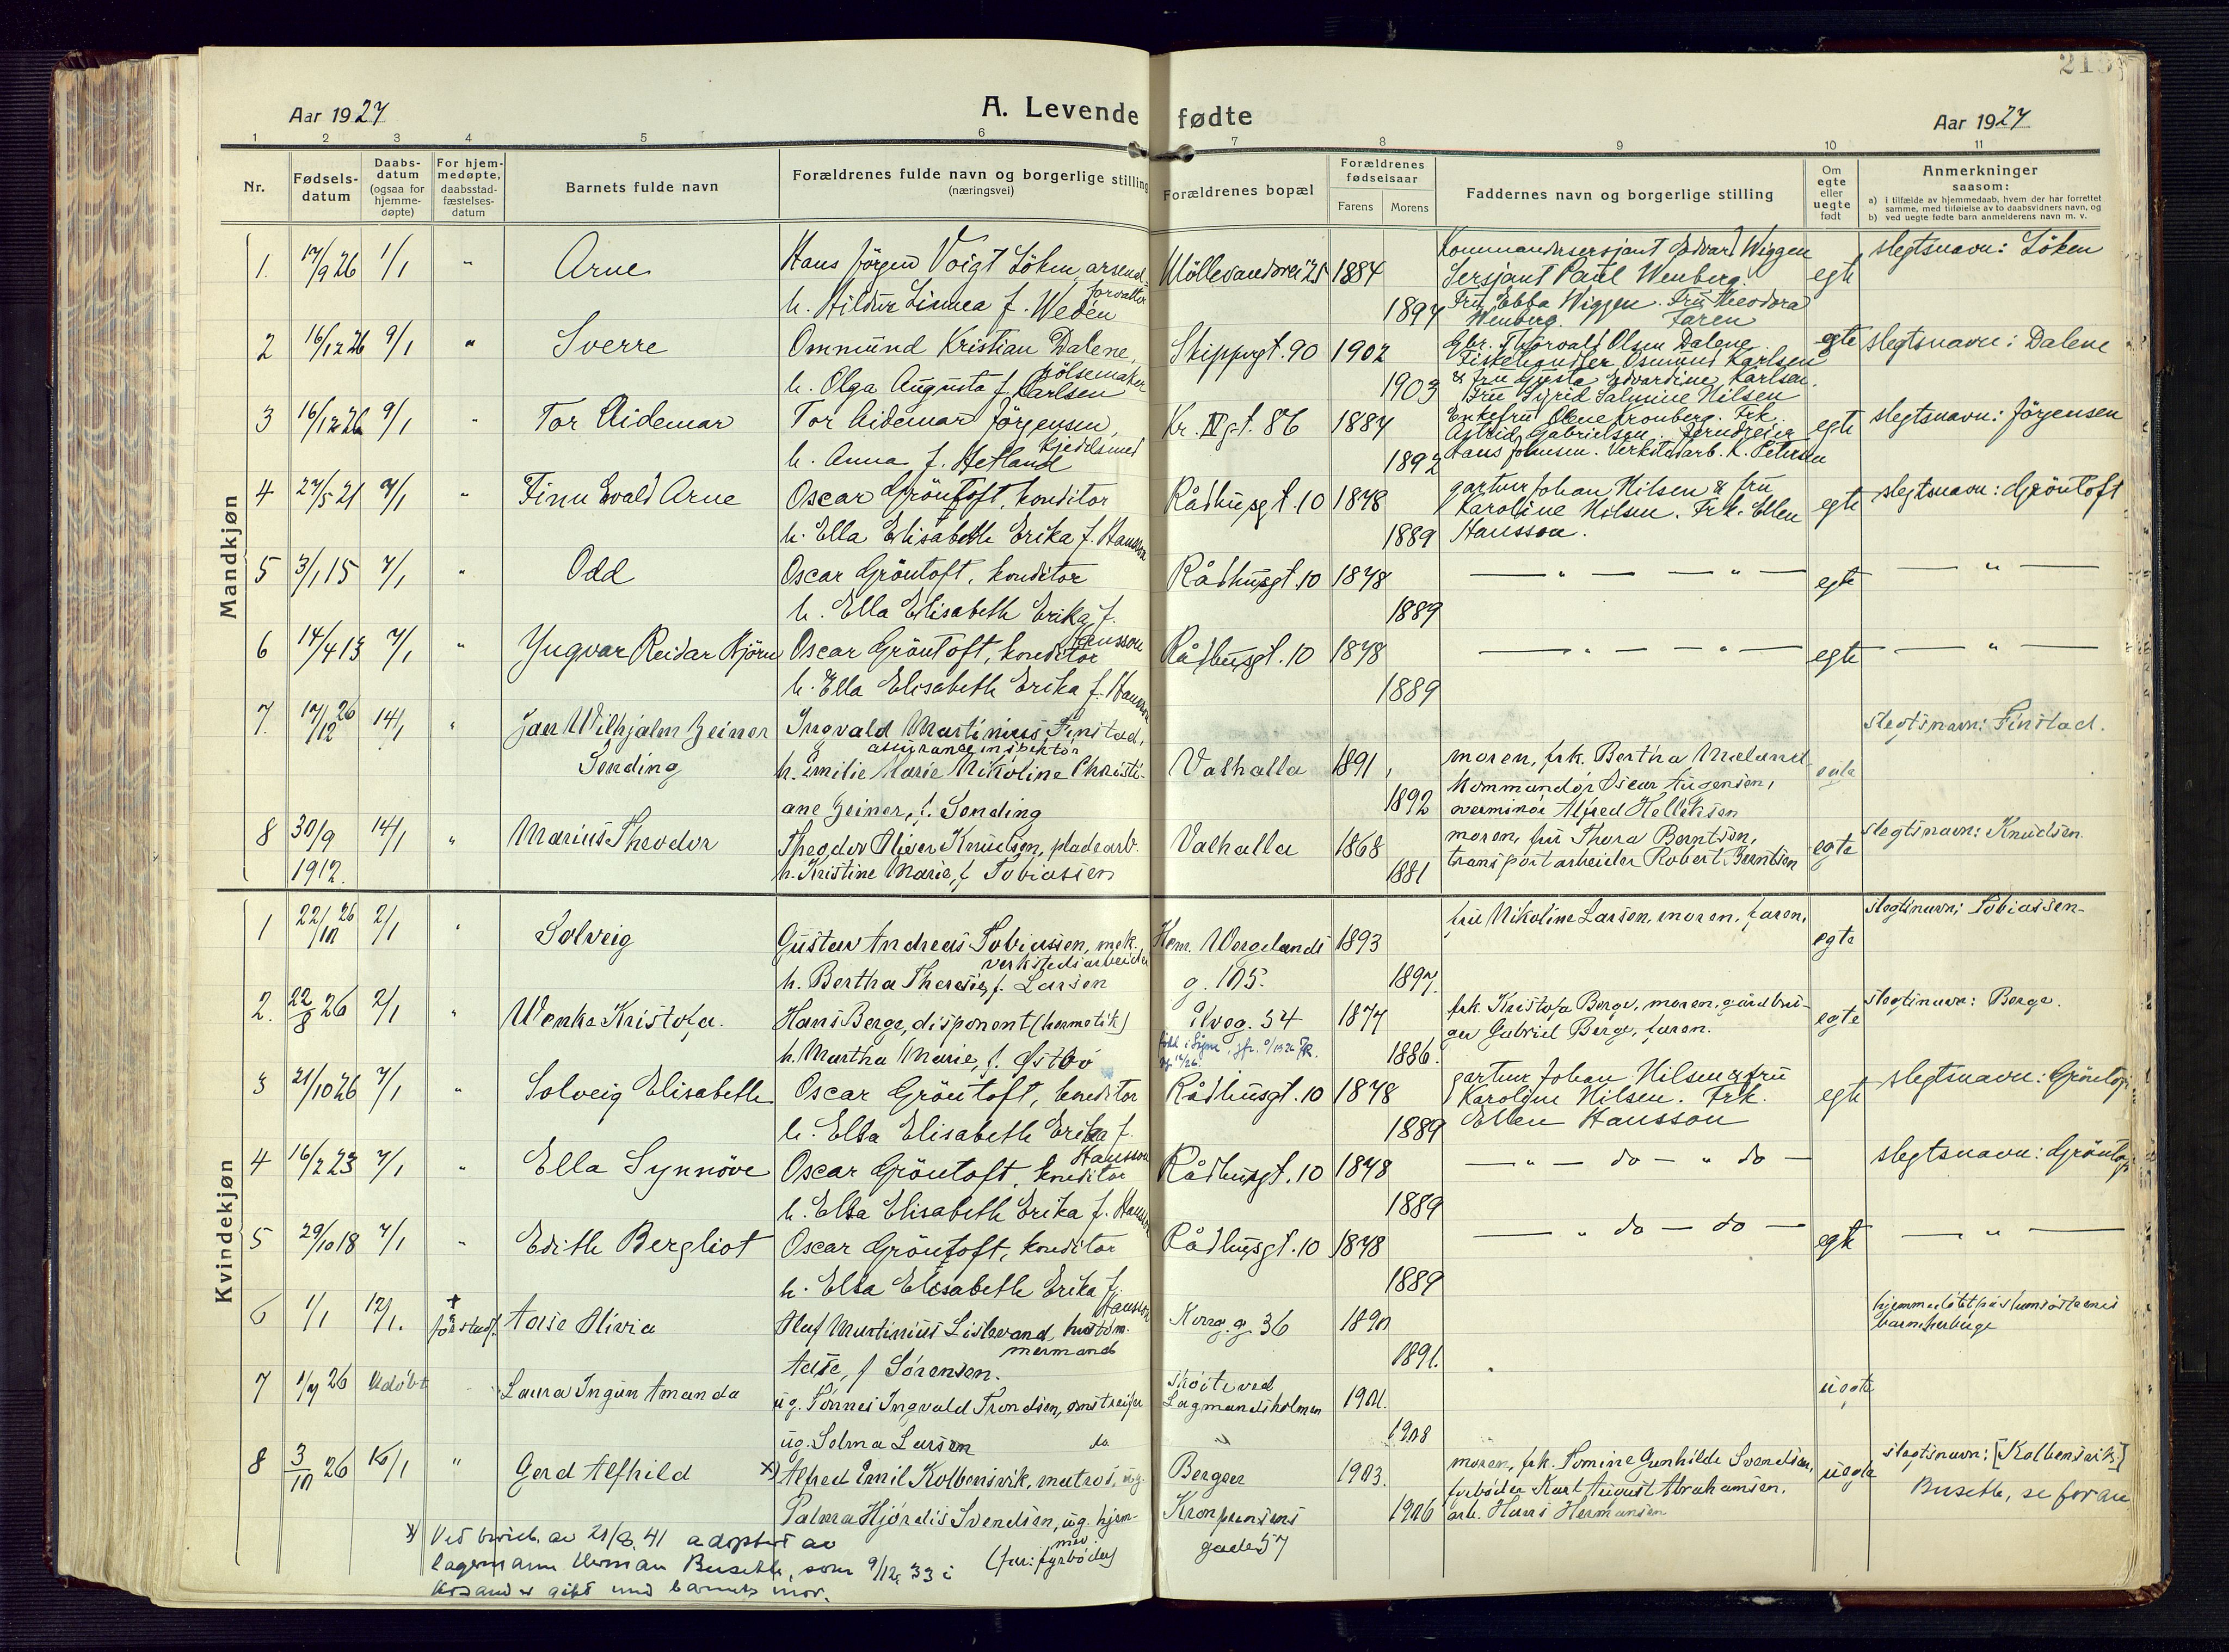 213
Aar 1927
A. Levende fødte
Aar 1927
1 2 3 4 5 6 7 8 9 10 11
Nr.
Fødsels-
datum
Daabs-
datum
(ogsaa for
hjemme-
døpte)
For hjem-
medøpte,
daabsstad-
fæstelses-
datum
Barnets fulde navn
Forældrenes fulde navn og borgerlige stilling
(næringsvei)
Forældrenes bopæl
Forældrenes
fødselsaar
Farens
Morens
Faddernes navn og borgerlige stilling
Om
egte
eller
uegte
født
Anmerkninger
saasom:
a) i tilfælde av hjemmedaab, hvem der har forrettet
samme, med tilføielse av to daabsvidners navn, og
b) ved uegte fødte barn anmelderens navn m. v.
Mandkjøn
1. 17/9 26 1/1 " Arne
Hans Jörgen Voigt Löken, arsenal-
forvalter
h. Hildur Linnea f. Wedén
Möllevandsvei 25 1884
1897
Kommandersersjant Edvard Wiggen
Sersjant Paul Wenberg.
Fru Ebba Wiggen. Fru Theodora
Wenberg. Faren
egte
slegtsnavn: Löken
2 16/12 26 9/1 " Sverre
Ommund Kristian Dalene,
pölsemaker
h. Olga Augusta f. Karlsen
Skippergt. 90 1902
1903
Gbr. Thorvald Olsen Dalene.
Fiskehandler Osmund Karlsen
& fru Gusta Edvardine Karlsen.
Fru Sigrid Salmine Nilsen
egte
slegtsnavn: Dalene
3 16/12 26 9/1 " Tor Aidemar
Tor Aidemar Jörgensen,
kjedelsmed
h. Anna f. Hetland
Kr. IV gt. 86 1884
1892
Enkefru Olene Kronberg. Frk.
Astrid Gabrielsen.
Hans Johnsen. Verkstedarb. K. Petersen
egte
slegtsnavn: Jörgensen
4 27/5 21 7/1 " Finn Evald Arne
Oscar Gröntoft, konditor
h. Ella Elisabeth Erika f. Hansson
Rådhusgt. 10 1878
1889
gartner Johan Nilsen & fru
Karoline Nilsen. Frk. Ellen
Hansson.
egte
slegtsnavn: Gröntoft
5 3/1 15 7/1 " Odd
Oscar Gröntoft, konditor
h. Ella Elisabeth Erika f.
Hansson
Rådhusgt. 10 1878
1889
— " — — " —
egte
— " —
6 14/4 13 7/1 " Yngvar Reidar Björn
Oscar Gröntoft, konditor
h. Ella Elisabeth Erika f. Hansson
Rådhusgt. 10 1878
1889
— " — — " —
egte
— " —
7. 17/12 26 14/1 " Jan Wilhjalm Zeiner
Sending
Ingvald Martinius Finstad,
assuranceinspektör
h. Emilie Marie Nikoline Christi-
ane Zeiner, f. Sending
Valhalla 1891
1892
moren, frk. Bertha Mæland
Kommandör Oscar Augensen,
overminör Alfred Helleksen
egte
slegtsnavn: Finstad.
8 30/9 1912. 14/1 " Marius Theodor
Theodor Oliver Knudsen, pladearb.
h. Kristine Marie, f. Tobiassen
Valhalla 1868
1881
moren, fru Thora Berntsen,
transportarbeider Robert Berntsen
egte
slegtsnavn: Knudsen.
Kvindekjøn
1 22/10 26 2/1 " Solveig
Gustav Andreas Tobiassen, mek.
verkstedsarbeider
h. Bertha Theresie, f. Larsen
Henr. Wergelands
g. 105.
1893
1897.
fru Nikoline Larsen, moren, faren,
egte
slegtsnavn: Tobiassen.
2. 22/8 26 2/1 " Wenke Kristofa.
Hans Berge, disponent (hermetik)
h. Martha Marie, f. Østbö
Elveg. 54 1877
1886.
frk. Kristofa Berge, moren, gårdbru-
ger Gabriel Berge, faren.
egte
slegtsnavn: Berge.
3 21/10 26 7/1 " Solveig Elisabeth
Oscar Gröntoft, konditor
h. Ella Elisabeth Erika f.
Hansson
Rådhusgt. 10 1878
1889
gartner Johan Nilsen & fru
Karoline Nilsen. Frk.
Ellen Hansson
egte
slegtsnavn: Gröntoft
4 16/2 23 7/1 " Ella Synnöve
Oscar Gröntoft, konditor
h. Ella Elisabeth Erika f. Hansson
Rådhusgt. 10 1878
1889
— " — do — " do —
slegtsnavn: Gröntoft
5 29/10 18 7/1 " Edith Bergliot
Oscar Gröntoft, konditor
h. Ella Elisabeth Erika f.
Hansson
Rådhusgt. 10 1878
1889
— " do — do —
egte
— " —
6 1/1 12/1. + før stadf. Aase Olivia
Olaf Martinius Lislevand,
Aase, f. Sörensen.
Kong. g. 36 1890
1891.
hjemmedöbt på
barneherberge
7 1/4 26 Udöbt Laura Ingun Amanda
ug. Tönnes Ingvald Trondsen, omstreifer
ug. Selma Larsen do
Sköite ved
Lagmandsholmen 1901.
1908
uegte
8 3/10 26 16/1 " Gerd Alfhild
x) Alfred Emil Kolbensvik, matros, ug.
Palma Hjördis Svendsen, ug. hjem-
mev.
(far: fyrböder)
Bergen
Kronprinsens
gade 57
1903.
1906
moren, frk. Tomine Gunhilde Svendsen,
fyrböder Karl August Abrahamsen,
arb. Hans Hermansen
uegte
slegtsnavn: [Kolbensvik]
Busette, se foran
x) Ved bevilln. av 21/8. 41 adoptert av
lagermann Herman Busette, som 9/12. 33 i
Kr.sand er gift med barnets mor.